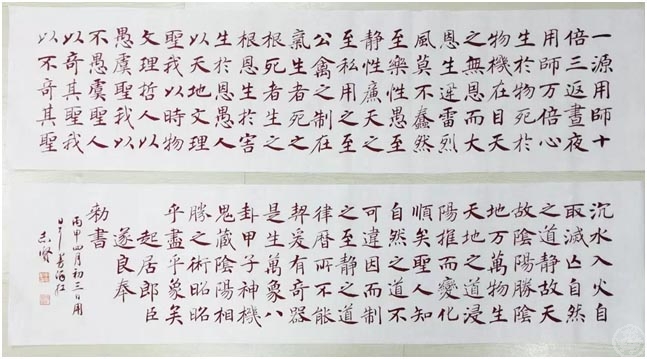 一源用師十
倍三返晝夜
用師万倍心
生於物死於
物機在目天
之無恩而大
恩生迅雷烈
風莫不蠢然
至樂性愚至
静性廉天之
至私用之至
公禽之制在
氣生者死之
根死者生之
根恩生於害
生於恩愚人
以天地文理
聖我以時物
文理哲人以
愚虞聖我以
不愚虞聖人
以奇其聖我
以不奇其聖
沉水入火自
取滅亡自然
之道静故天
故陰陽勝陰
地万萬物生
天地之道浸
陽推而變化
順矣聖人知
自然之道不
可違因而制
之至静之道
律曆所不能
契爰有奇器
是生萬象八
卦甲子神機
鬼藏陰陽相
勝之術昭昭
乎盡乎象矣
起居郎臣
遂良奉
勅書
丙申四月初三日用
志賢